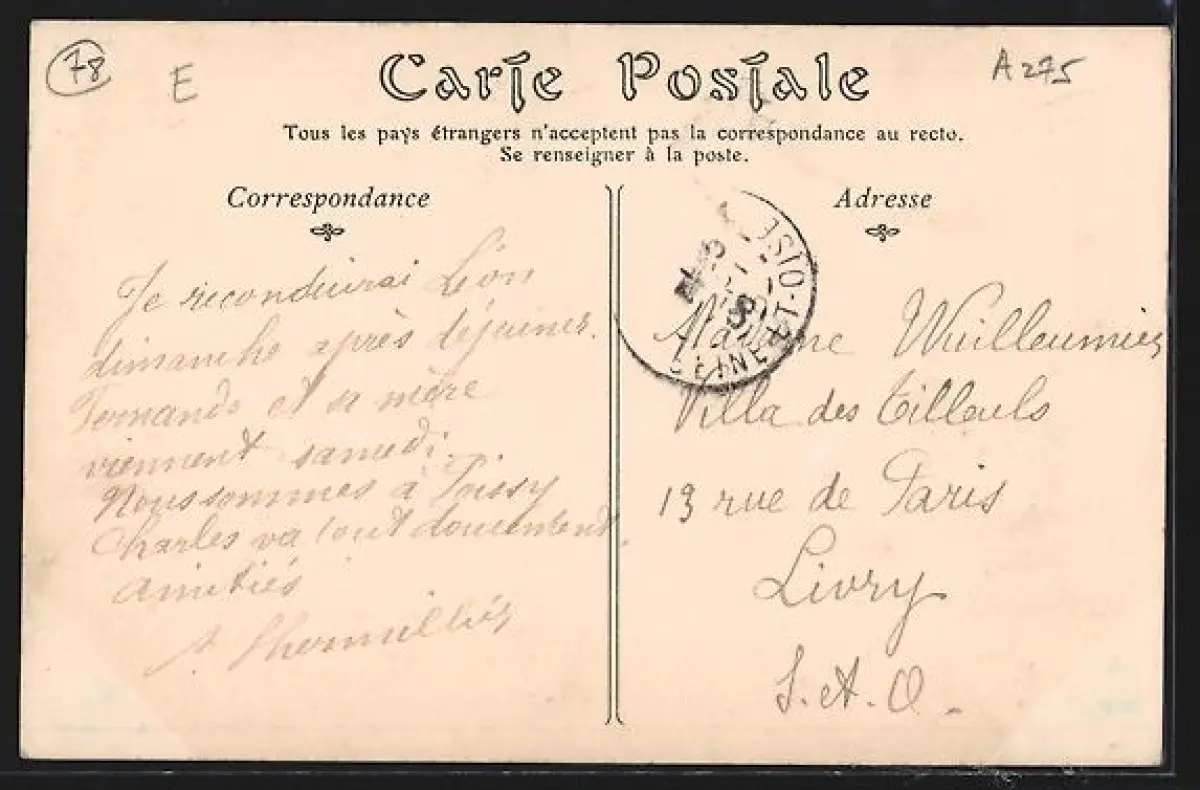 78
E
A275
Carte Postale
Tous les pays étrangers n'acceptent pas la correspondance au recto.
Se renseigner à la poste.
Correspondance
Je reconduirai Léon
dimanche après déjeuner.
Fernande et sa mère
viennent samedi.
Nous sommes à Poissy
Charles va tout doucement.
amitiés
Adresse
SEINE-ET-OISE
Madame Wuilleumier
Villa des tilleuls
13 rue de Paris
Livry
S. et. O.